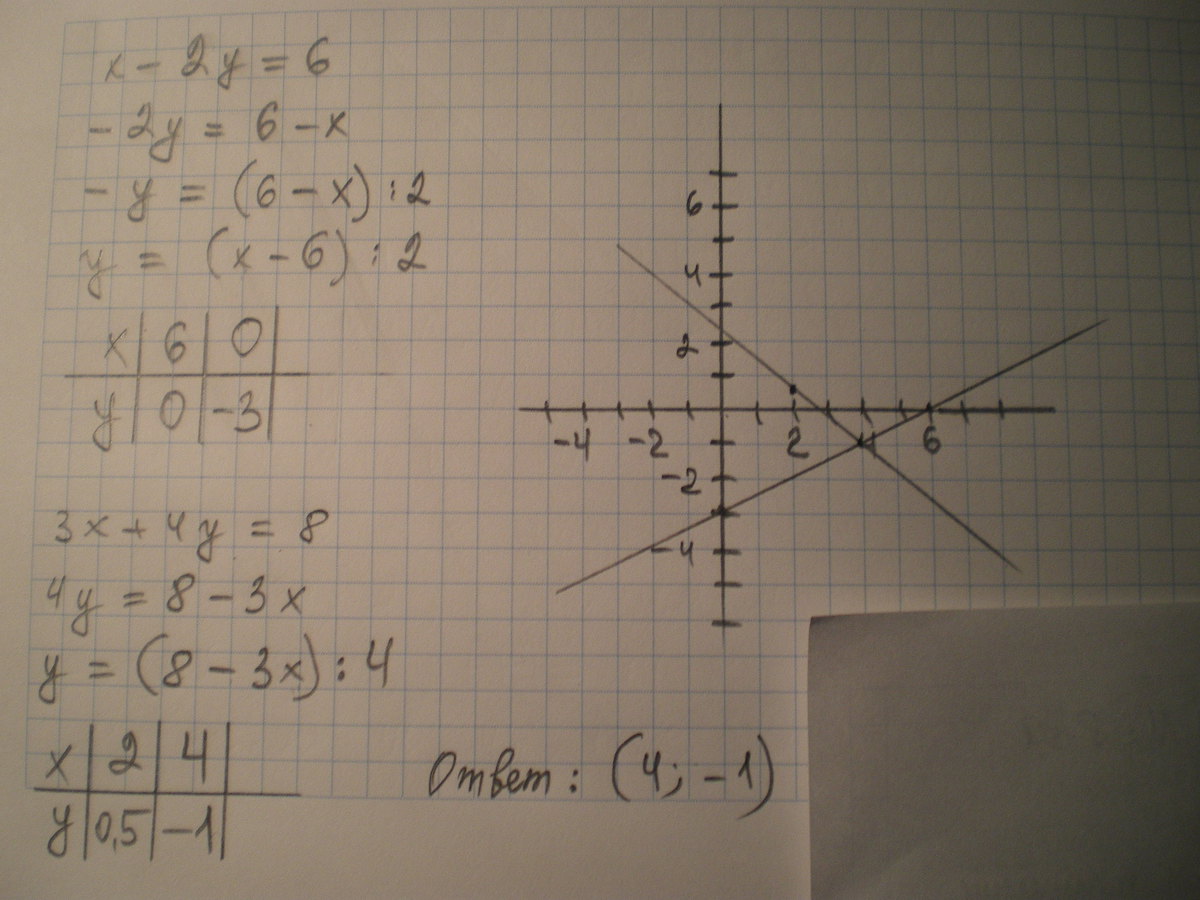 x - 2y = 6
- 2y = 6 - x
- y = (6 - x) : 2
y = (x - 6) : 2
x | 6 | 0
y | 0 | -3
3x + 4y = 8
4y = 8 - 3x
y = (8 - 3x) : 4
x | 2 | 4
y | 0,5 | -1
6
4
2
-4 -2 2 4 6
-2
-4
Ответ: (4; -1)